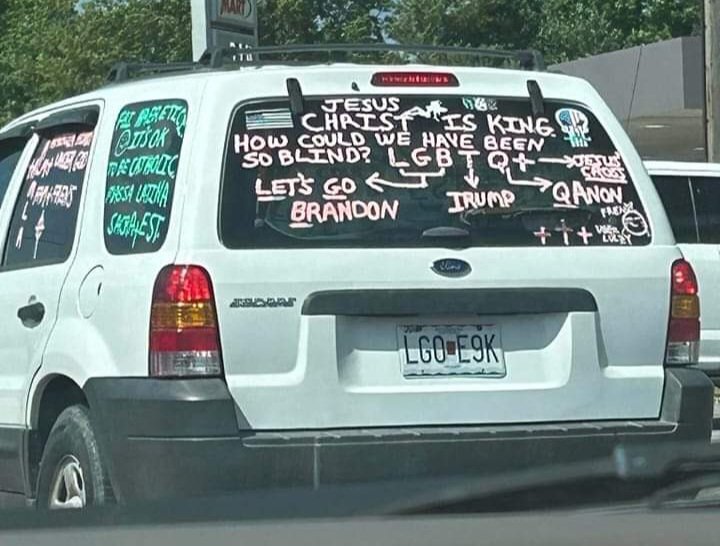 MART
JESUS
CHRIST IS KING.
HOW COULD WE HAVE BEEN
SO BLIND? LGBTQ+
JESUS
LET'S GO
BRANDON
TRUMP
QANON
FREN
IT'S OK
TO BE CATHOLIC
MASSA LATINA
SACRA EST.
Ford
ESCAPE
LGO E9K